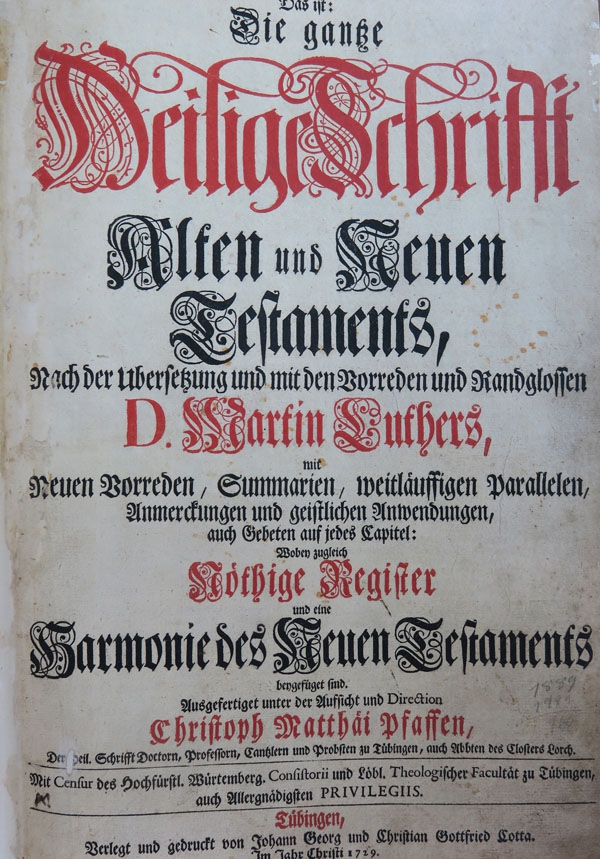 Das ist:
Die gantze
Heilige Schrifft
Alten und Neuen
Testaments,
Nach der Ubersetzung und mit den Vorreden und Randglossen
D. Martin Luthers,
mit
Neuen Vorreden, Summarien, weitläuffigen Parallelen,
Anmerckungen und geistlichen Anwendungen,
auch Gebeten auf jedes Capitel:
Wobey zugleich
Nöthige Register
und eine
Harmonie des Neuen Testaments
beygefüget sind.
Ausgefertiget unter der Aufsicht und Direction
Christoph Matthäi Pfaffen,
Der Heil. Schrifft Doctorn, Professorn, Cantzlern und Probsten zu Tübingen, auch Abbten des Closters Lorch.
Mit Censur des Hochfürstl. Würtemberg. Consistorii und Löbl. Theologischer Facultät zu Tübingen,
auch Allergnädigsten PRIVILEGIIS.
Tübingen,
Verlegt und gedruckt von Johann Georg und Christian Gottfried Cotta.
Im Jahr Christi 1729.
1889